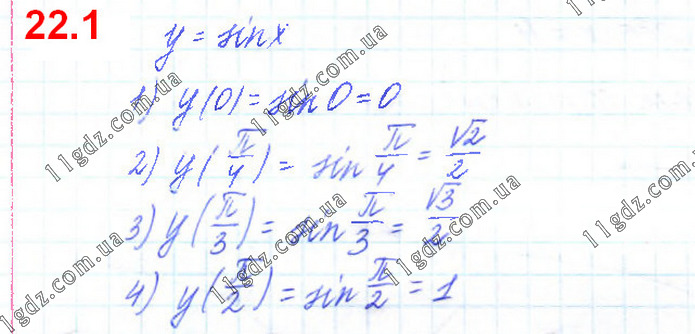 22.1
y = sin x
1) y(0) = sin 0 = 0
2) y(π/4) = sin π/4 = √2/2
3) y(π/3) = sin π/3 = √3/2
4) y(π/2) = sin π/2 = 1
11gdz.com.ua
11gdz.com.ua
11gdz.com.ua
11gdz.com.ua
11gdz.com.ua
11gdz.com.ua
11gdz.com.ua